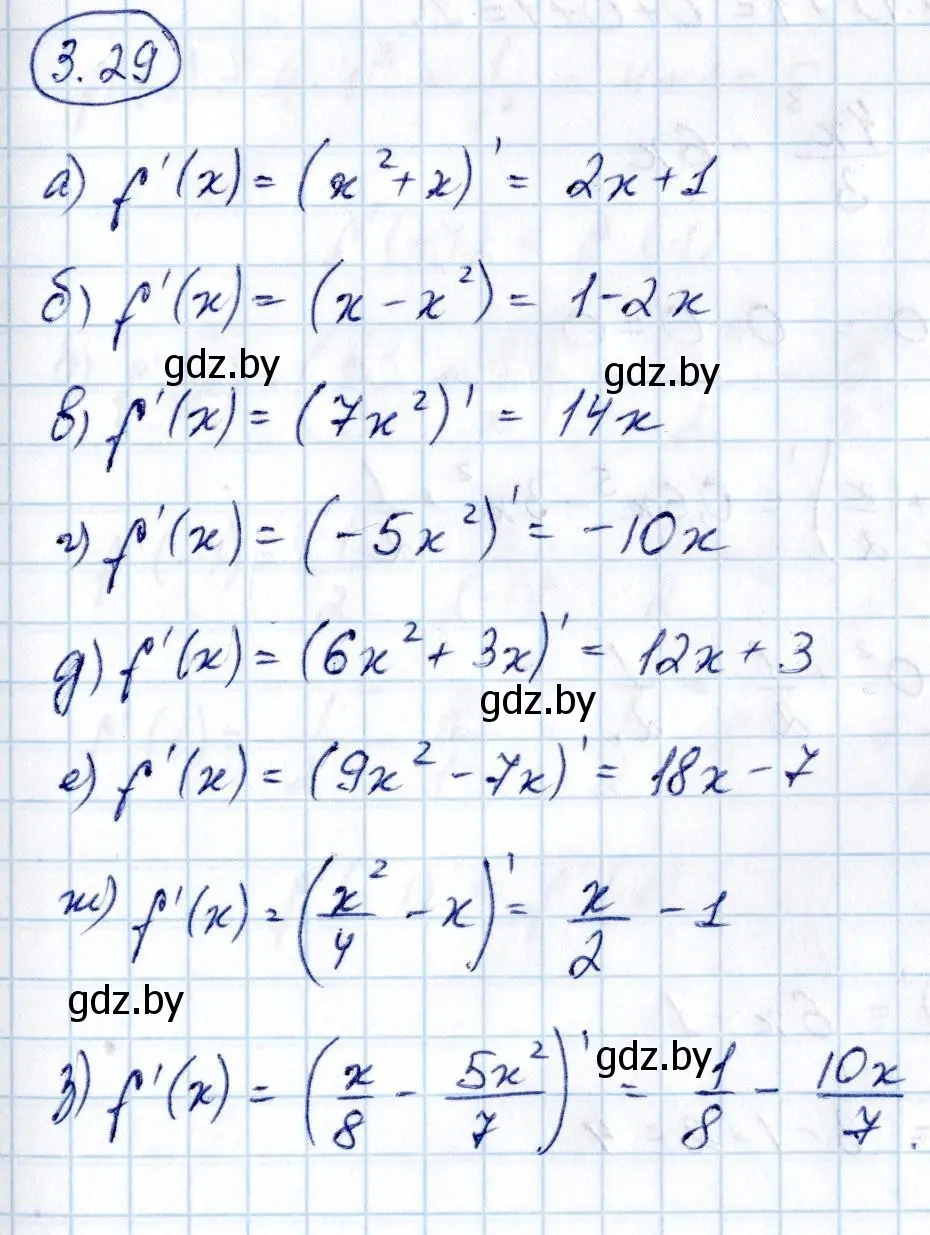 3.29
а) f'(x) = (x² + x)' = 2x + 1
б) f'(x) = (x - x²) = 1 - 2x
gdz.by gdz.by
в) f'(x) = (7x²)' = 14x
г) f'(x) = (-5x²)' = -10x
д) f'(x) = (6x² + 3x)' = 12x + 3
gdz.by
е) f'(x) = (9x² - 7x)' = 18x - 7
ж) f'(x) = (x²/4 - x)' = x/2 - 1
gdz.by
gdz.by
з) f'(x) = (x/8 - 5x²/7)' = 1/8 - 10x/7.